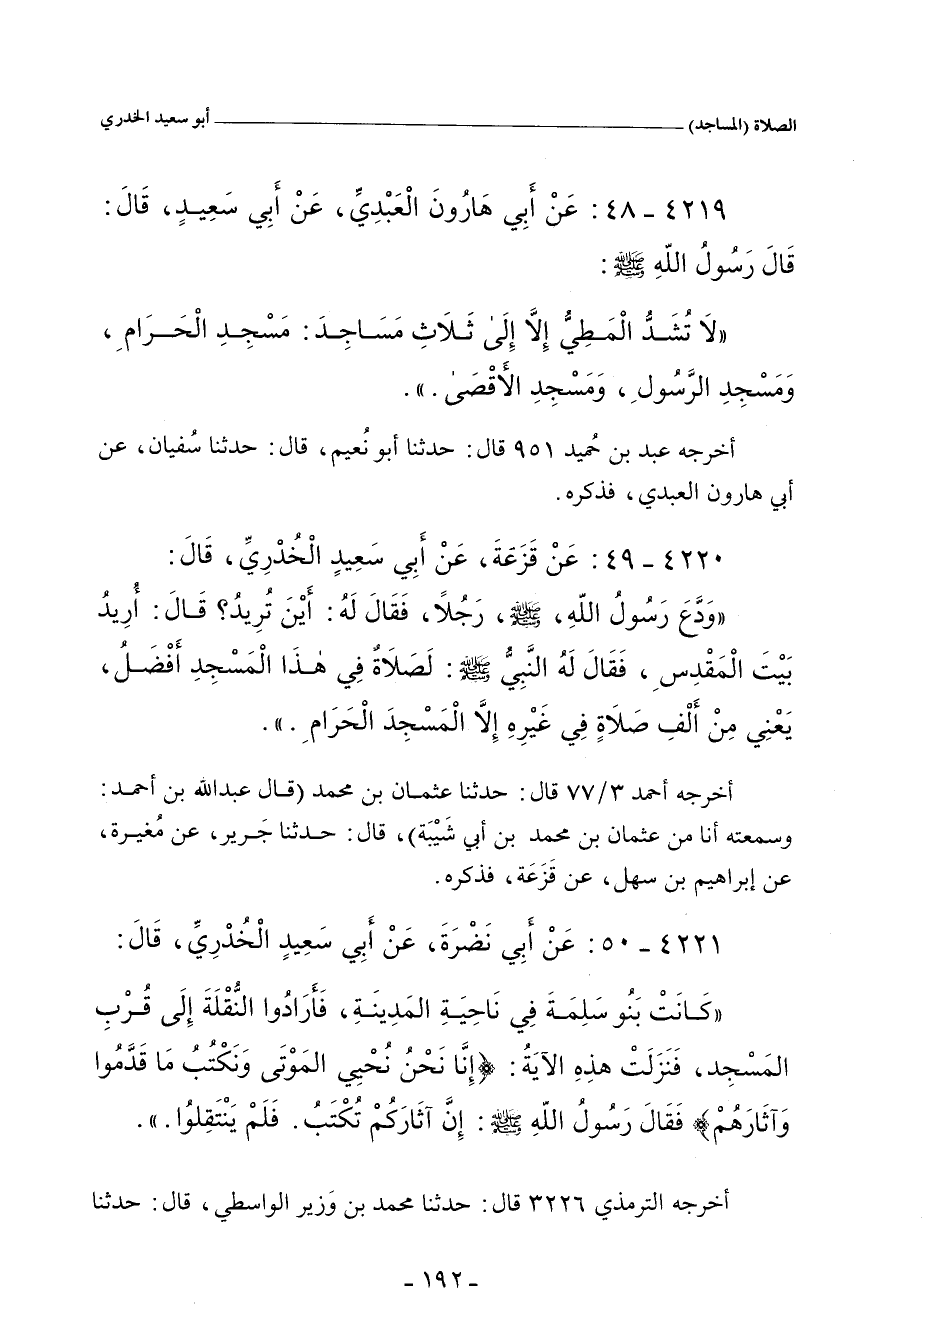 الصلاة (المساجد) ــــــــــــــــــــ أبو سعيد الخدري
٤٢١٩ - ٤٨ : عَنْ أَبِي هَارُونَ الْعَبْدِيِّ، عَنْ أَبِي سَعِيدٍ، قَالَ :
قَالَ رَسُولُ اللّهِ ﷺ :
«لَا تُشَدُّ الْمَطِيُّ إِلَّا إِلَىٰ ثَلَاثِ مَسَاجِدَ : مَسْجِدِ الْحَرَامِ ،
وَمَسْجِدِ الرَّسُولِ ، وَمَسْجِدِ الأَقْصَىٰ . » .
أخرجه عبد بن حُميد ٩٥١ قال : حدثنا أبو نُعيم، قال : حدثنا سُفيان، عن
أبي هارون العبدي، فذكره .
٤٢٢٠ - ٤٩ : عَنْ قَزَعَةَ، عَنْ أَبِي سَعِيدٍ الْخُدْرِيِّ، قَالَ :
«وَدَّعَ رَسُولُ اللّهِ، ﷺ، رَجُلًا، فَقَالَ لَهُ : أَيْنَ تُرِيدُ؟ قَالَ : أُرِيدُ
بَيْتَ الْمَقْدِسِ ، فَقَالَ لَهُ النَّبِيُّ ﷺ : لَصَلَاةٌ فِي هٰذَا الْمَسْجِدِ أَفْضَلُ،
يَعْنِي مِنْ أَلْفِ صَلَاةٍ فِي غَيْرِهِ إِلَّا الْمَسْجِدَ الْحَرَامِ . » .
أخرجه أحمد ٧٧/٣ قال : حدثنا عثمان بن محمد (قال عبدالله بن أحمد :
وسمعته أنا من عثمان بن محمد بن أبي شَيْبَة)، قال : حدثنا جَرير، عن مُغيرة،
عن إبراهيم بن سهل، عن قَزَعَة، فذكره .
٤٢٢١ - ٥٠ : عَنْ أَبِي نَضْرَةَ، عَنْ أَبِي سَعِيدٍ الْخُدْرِيِّ، قَالَ :
«كَانَتْ بَنُو سَلِمَةَ فِي نَاحِيَةِ المَدِينَةِ، فَأَرَادُوا النُّقْلَةَ إِلَى قُرْبِ
المَسْجِدِ، فَنَزَلَتْ هذِهِ الآيَةُ : ﴿إِنَّا نَحْنُ نُحْيِي المَوْتَى وَنَكْتُبُ مَا قَدَّمُوا
وَآثَارَهُمْ﴾ فَقَالَ رَسُولُ اللّهِ ﷺ : إِنَّ آثَارَكُمْ تُكْتَبُ. فَلَمْ يَنْتَقِلُوا . » .
أخرجه الترمذي ٣٢٢٦ قال : حدثنا محمد بن وَزير الواسطي، قال : حدثنا
- ١٩٢ -